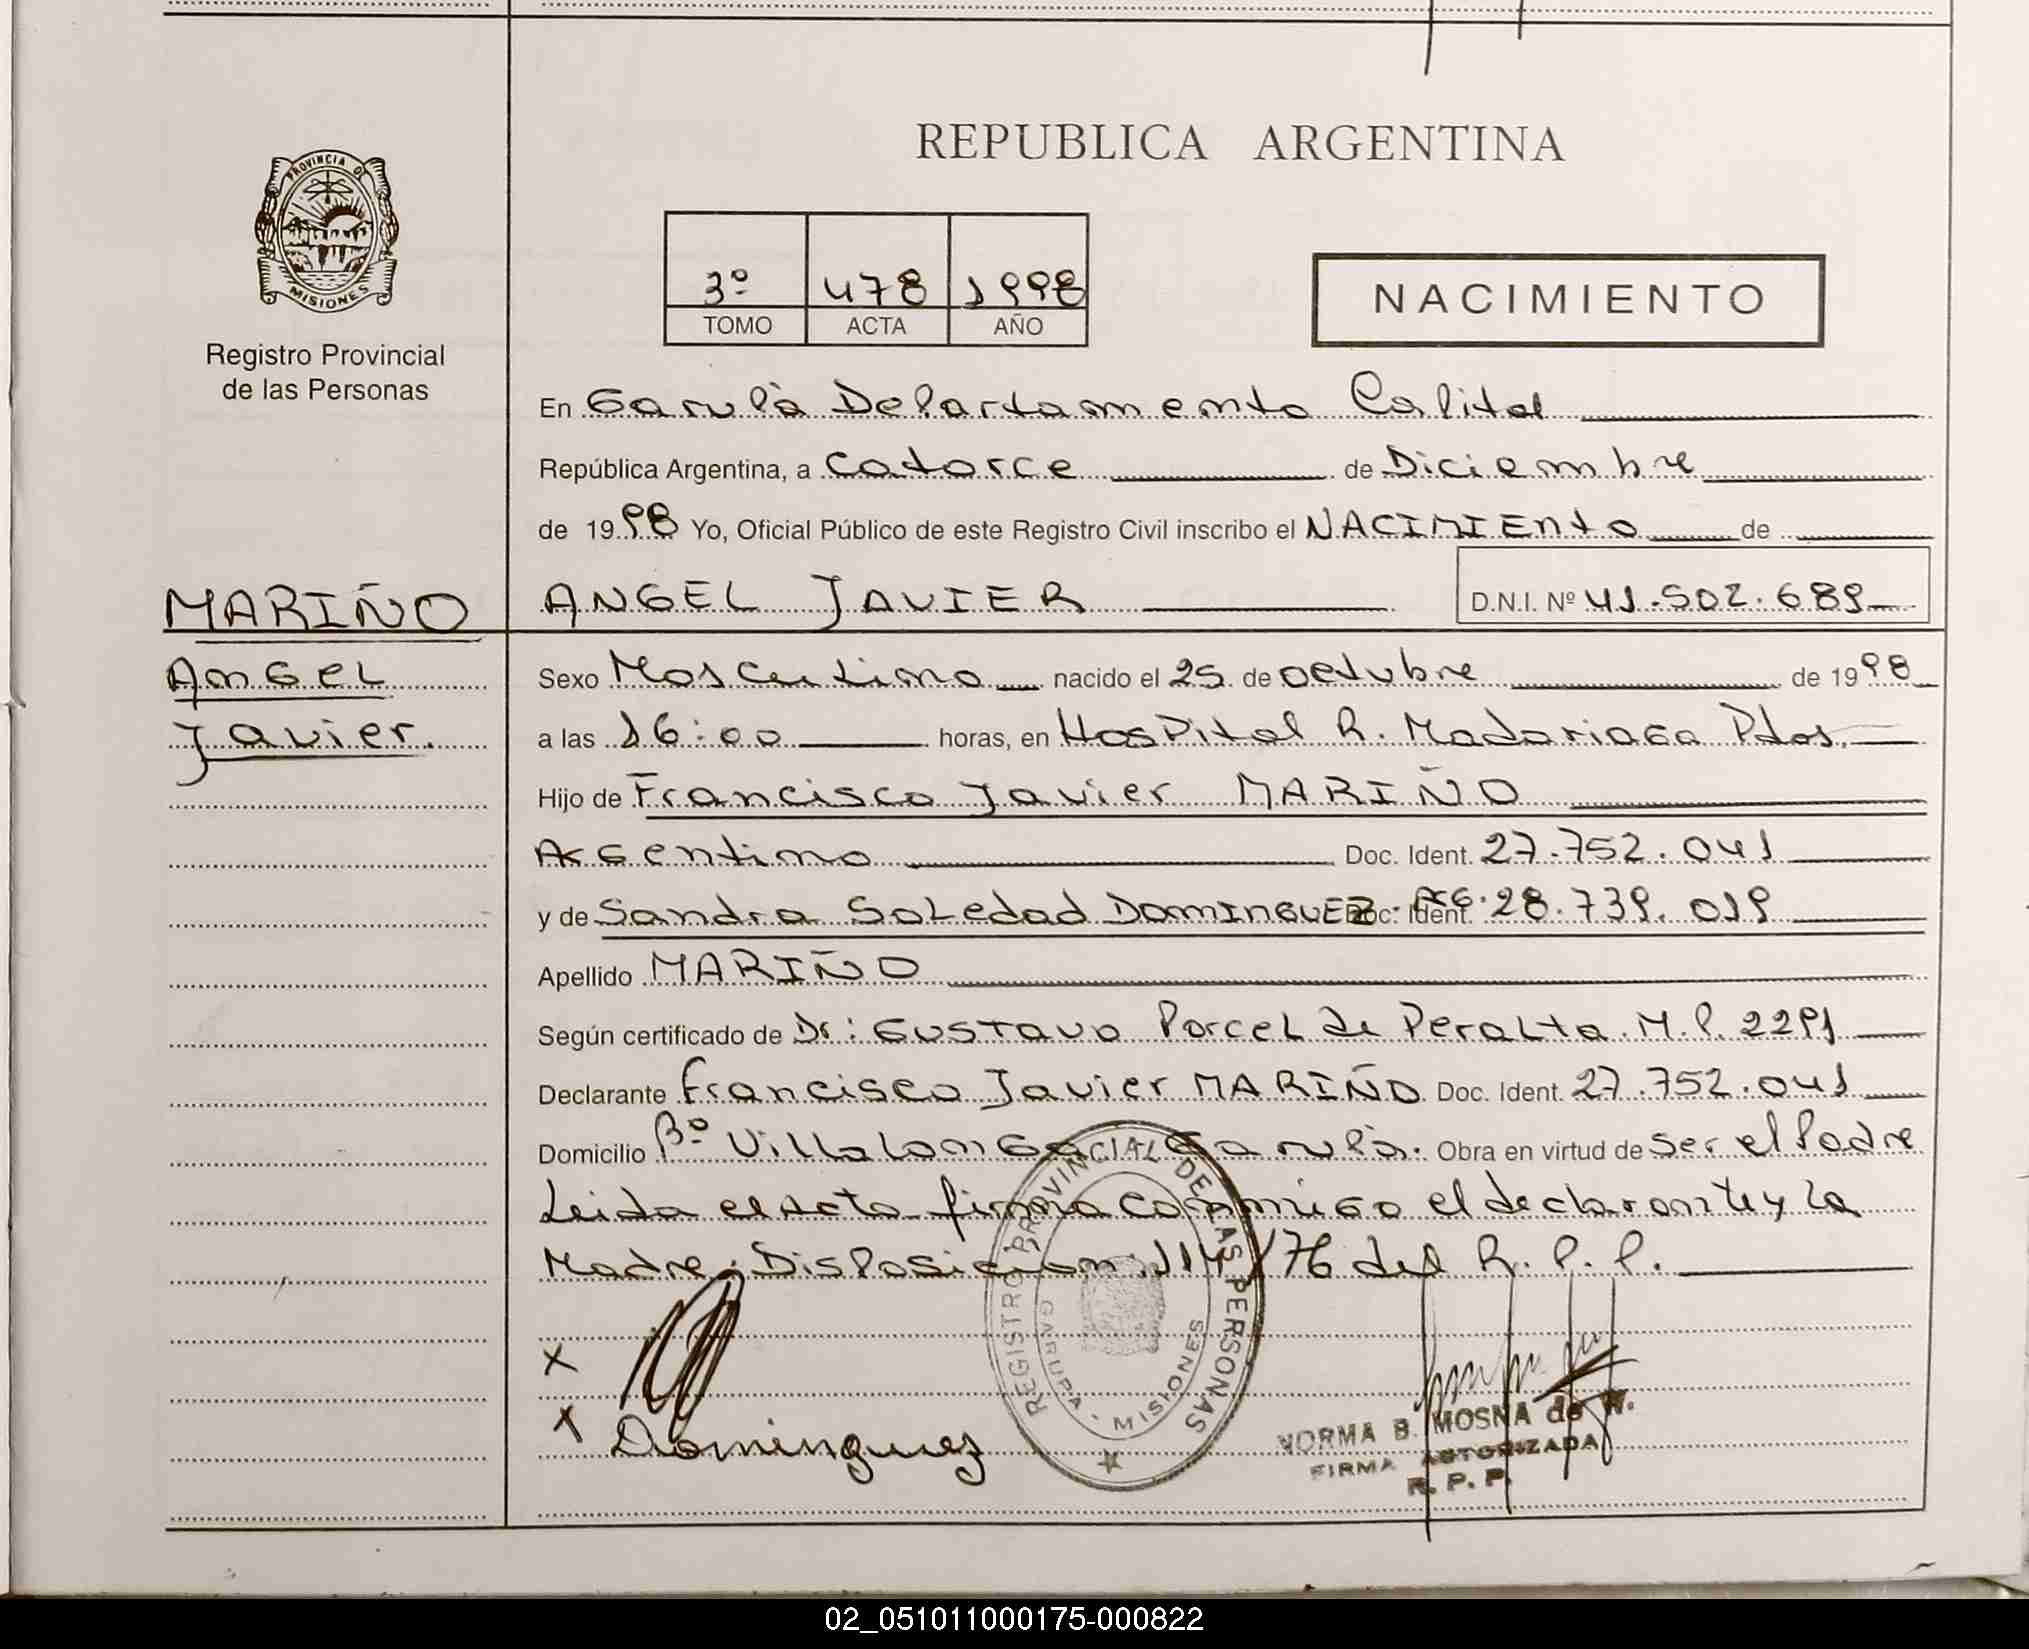 REPUBLICA ARGENTINA
PROVINCIA DE
MISIONES
Registro Provincial
de las Personas
3º 478 1998
TOMO ACTA AÑO
NACIMIENTO
En Garupá Departamento Capital
República Argentina, a catorce de Diciembre
de 1998 Yo, Oficial Público de este Registro Civil inscribo el NACIMIENTO de
MARIÑO ANGEL JAVIER D.N.I. Nº 41.502.689
Angel
Javier.
Sexo Masculino nacido el 25 de octubre de 1998
a las 16:00 horas, en Hospital R. Madariaga Pdas.
Hijo de Francisco Javier MARIÑO
Argentino Doc. Ident. 27.752.041
y de Sandra Soledad DOMINGUEZ. Arg. Doc. Ident. 28.739.019
Apellido MARIÑO
Según certificado de Dr: Gustavo Porcel de Peralta. M.P. 2291
Declarante Francisco Javier MARIÑO Doc. Ident. 27.752.041
Domicilio Bº Villalonga Garupá. Obra en virtud de ser el Padre
Leida el acta firma conmigo el declarante y la
Madre. Disposición 114/76 del R. P. P.
X
X Dominguez
REGISTRO PROVINCIAL DE LAS PERSONAS
GARUPA - MISIONES
NORMA B. MOSNA de W.
FIRMA AUTORIZADA
R. P. P.
02_051011000175-000822